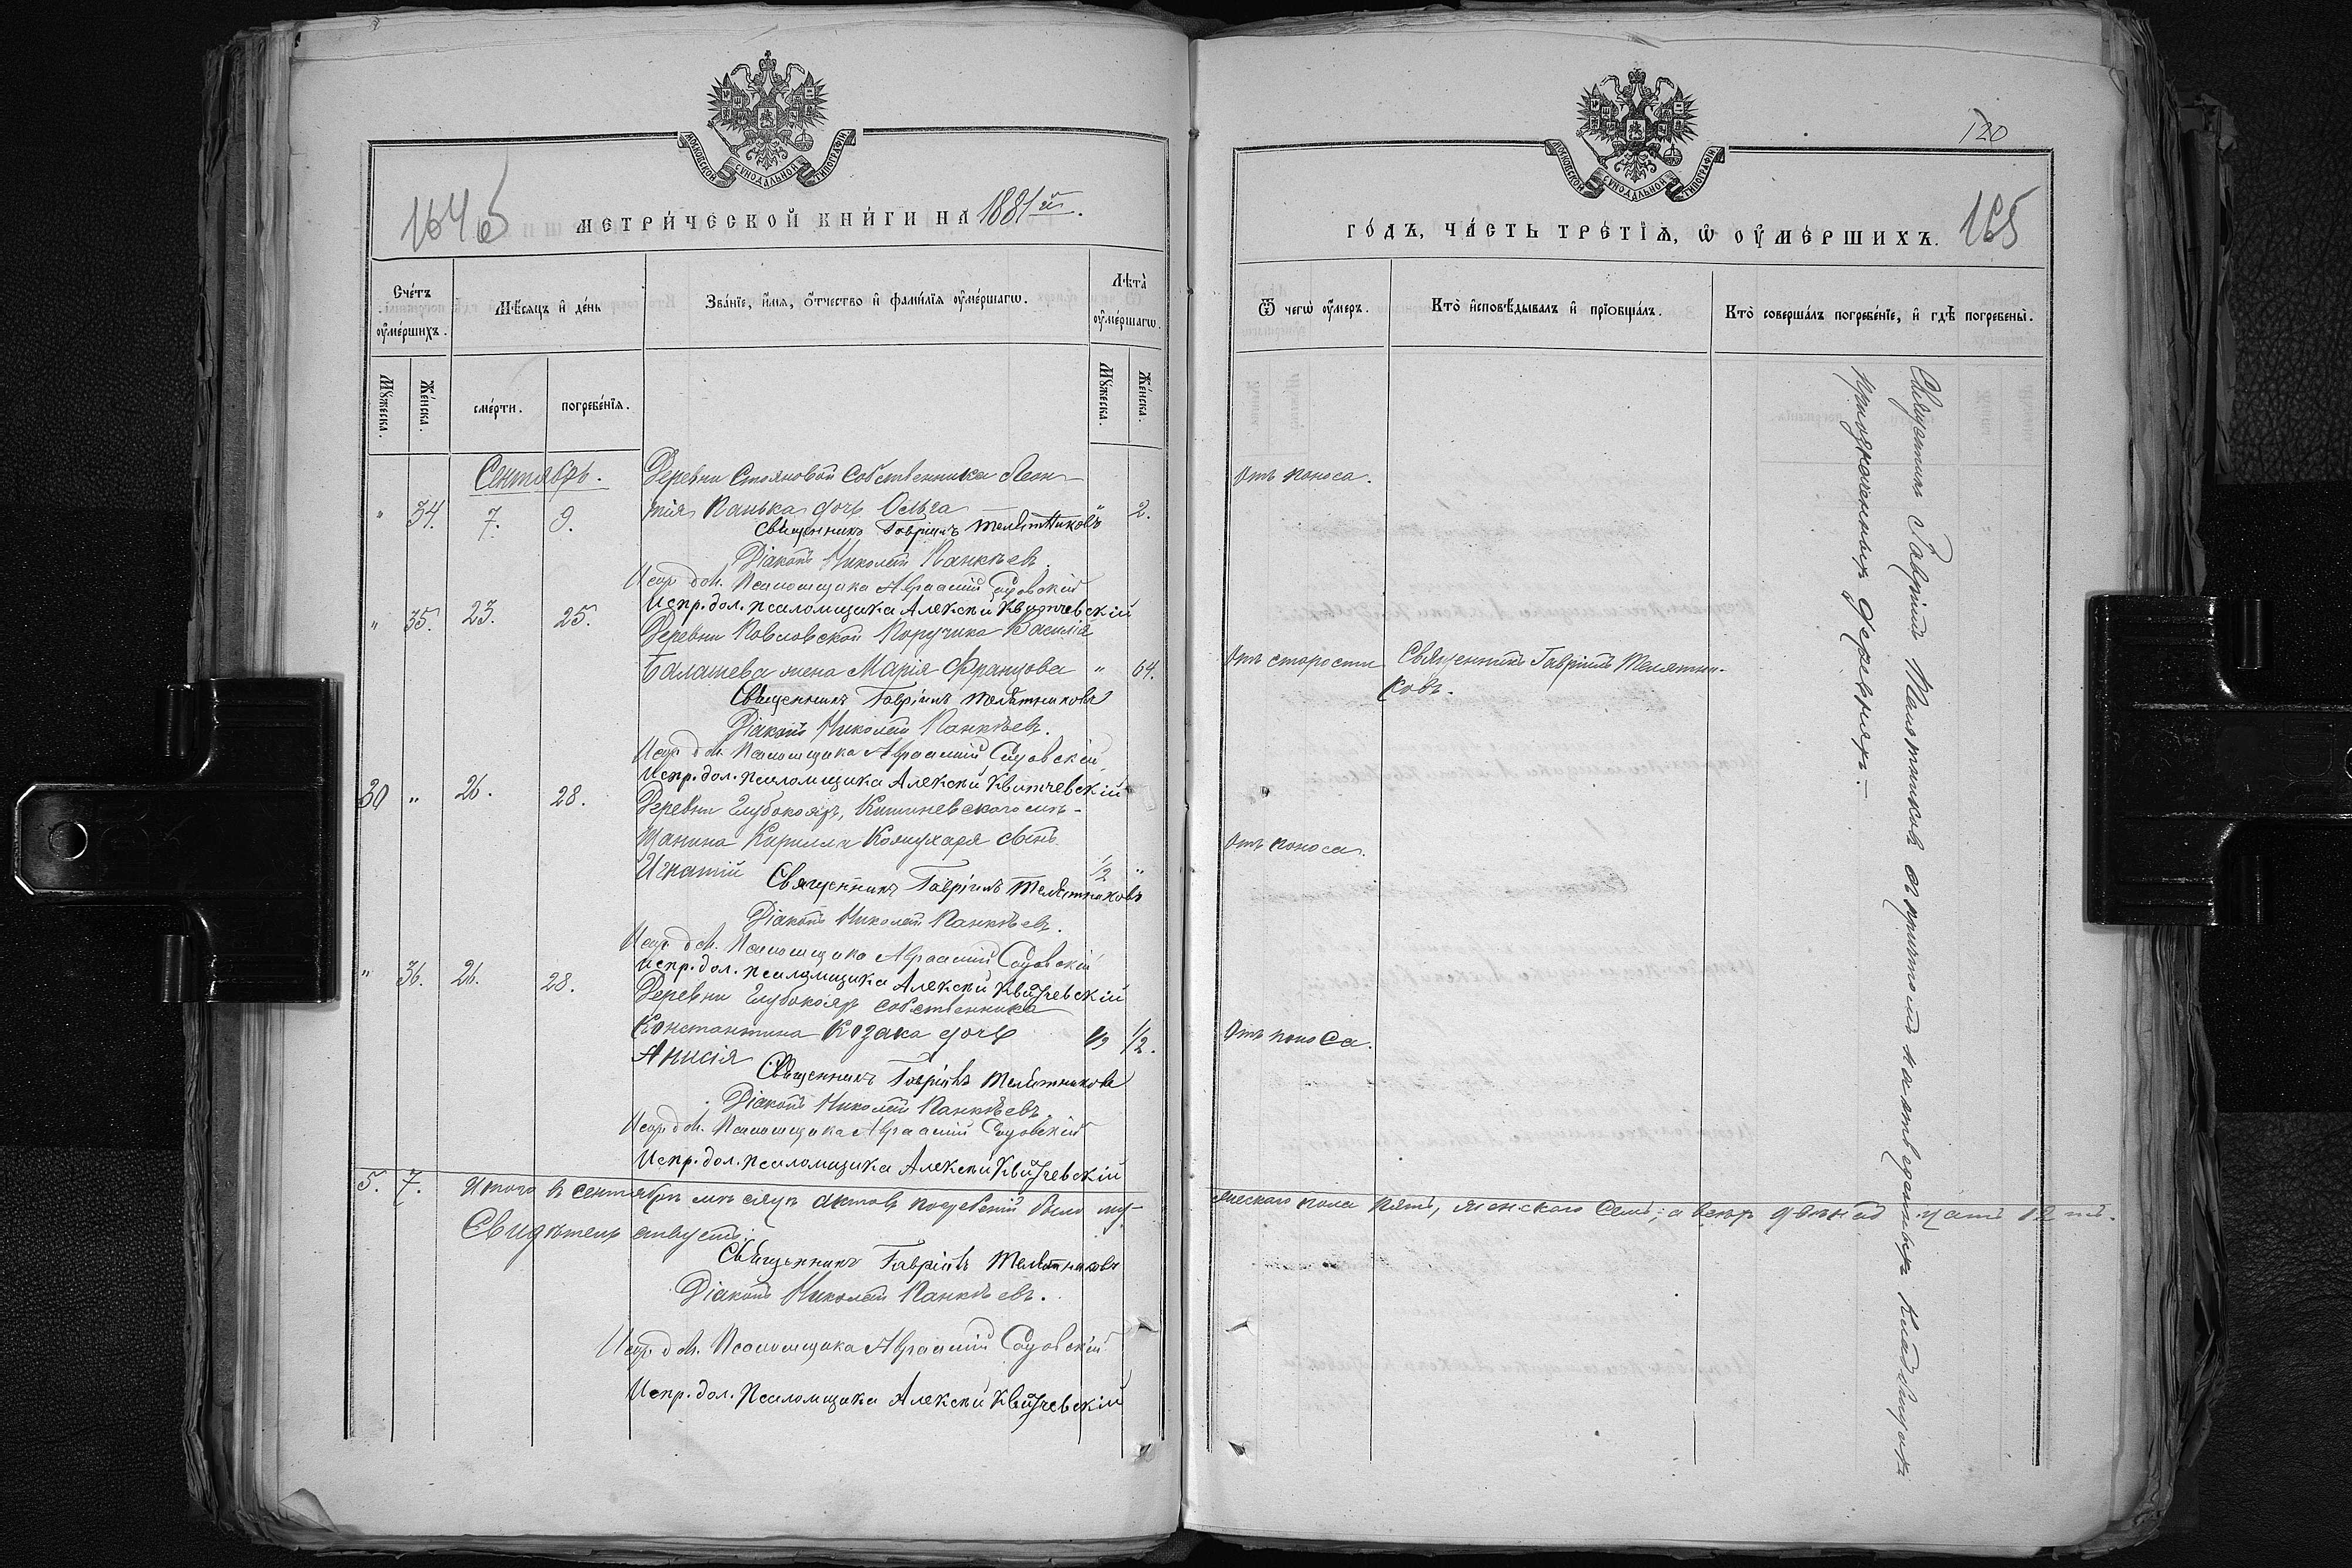 МОСКОВСКОЙ СѴНОДАЛЬНОЙ ТИПОГРАФІИ
МЕТРИ́ЧЕСКОЙ КНИ́ГИ НА 1881й.
Сче́тъ ᲂу҆ме́ршихъ.
Мѣ́сяцъ и҆ де́нь
Зва́нїе, и҆́мя, ѻ҆́тчество и҆ фами́лїя ᲂу҆ме́ршагѡ.
Лѣта̀ ᲂу҆ме́ршагѡ.
Мꙋ́жеска.
Же́нска.
сме́рти.
погребе́нїя.
Мꙋ́жеска.
Же́нска.
Сентябрь.
Деревни Стояновой собственника Леон-
" 34. 7. 9. тія Панька дочь Ольга " 2.
Священникъ Гавріилъ Телятниковъ
Діаконъ Николай Панкѣевъ.
Испр. дол. Псаломщика Авраамій Садовскій
Испр. дол. псаломщика Алексѣй Квитчевскій
" 35. 23. 25. Деревни Поручика Василія
Балашева жена Марія Францова " 64.
Священникъ Гавріилъ Телятниковъ
Діаконъ Николай Панкѣевъ.
Испр. дол. Псаломщика Авраамій Садовскій
Испр. дол. псаломщика Алексѣй Квитчевскій
30 " 26. 28. Деревни Глубокояръ, Кишиневскаго мѣ-
щанина Кирилла сынъ
Игнатій 1/2 "
Священникъ Гавріилъ Телятниковъ
Діаконъ Николай Панкѣевъ.
Испр. дол. Псаломщика Авраамій Садовскій
Испр. дол. псаломщика Алексѣй Квитчевскій
" 36. 26. 28. Деревни Глубокояръ собственника
Константина Козака дочь " 1/2.
Анисія
Священникъ Гавріилъ Телятниковъ
Діаконъ Николай Панкѣевъ.
Испр. дол. Псаломщика Авраамій Садовскій
Испр. дол. псаломщика Алексѣй Квитчевскій
5. 7. Итого въ сентябрѣ мѣсяцѣ актовъ погребеній было му-
Свидѣтельствуемъ:
Священникъ Гавріилъ Телятниковъ
Діаконъ Николай Панкѣевъ.
Испр. дол. Псаломщика Авраамій Садовскій
Испр. дол. Псаломщика Алексѣй Квитчевскій
120
МОСКОВСКОЙ СѴНОДАЛЬНОЙ ТИПОГРАФІИ
ГО́ДЪ, ЧА́СТЬ ТРЕ́ТЇѦ, Ѡ ОУ҆МЕ́РШИХЪ. 165
Ѿ чегѡ̀ ᲂу҆́меръ.
Кто̀ и҆сповѣ́дывалъ и҆ прїѡбща́лъ.
Кто̀ соверша́лъ погребе́нїе, и҆ гдѣ̀ погребены̀.
Отъ поноса.
Отъ старости Священникъ Гавріилъ Телятни-
ковъ.
Отъ поноса.
Отъ поноса.
жескаго пола пять, женскаго семь, а всѣхъ двѣнадцать 12ть.
Священникъ Гавріилъ Телятниковъ съ причтомъ на отведенныхъ кладбищахъ
приходскихъ деревняхъ.